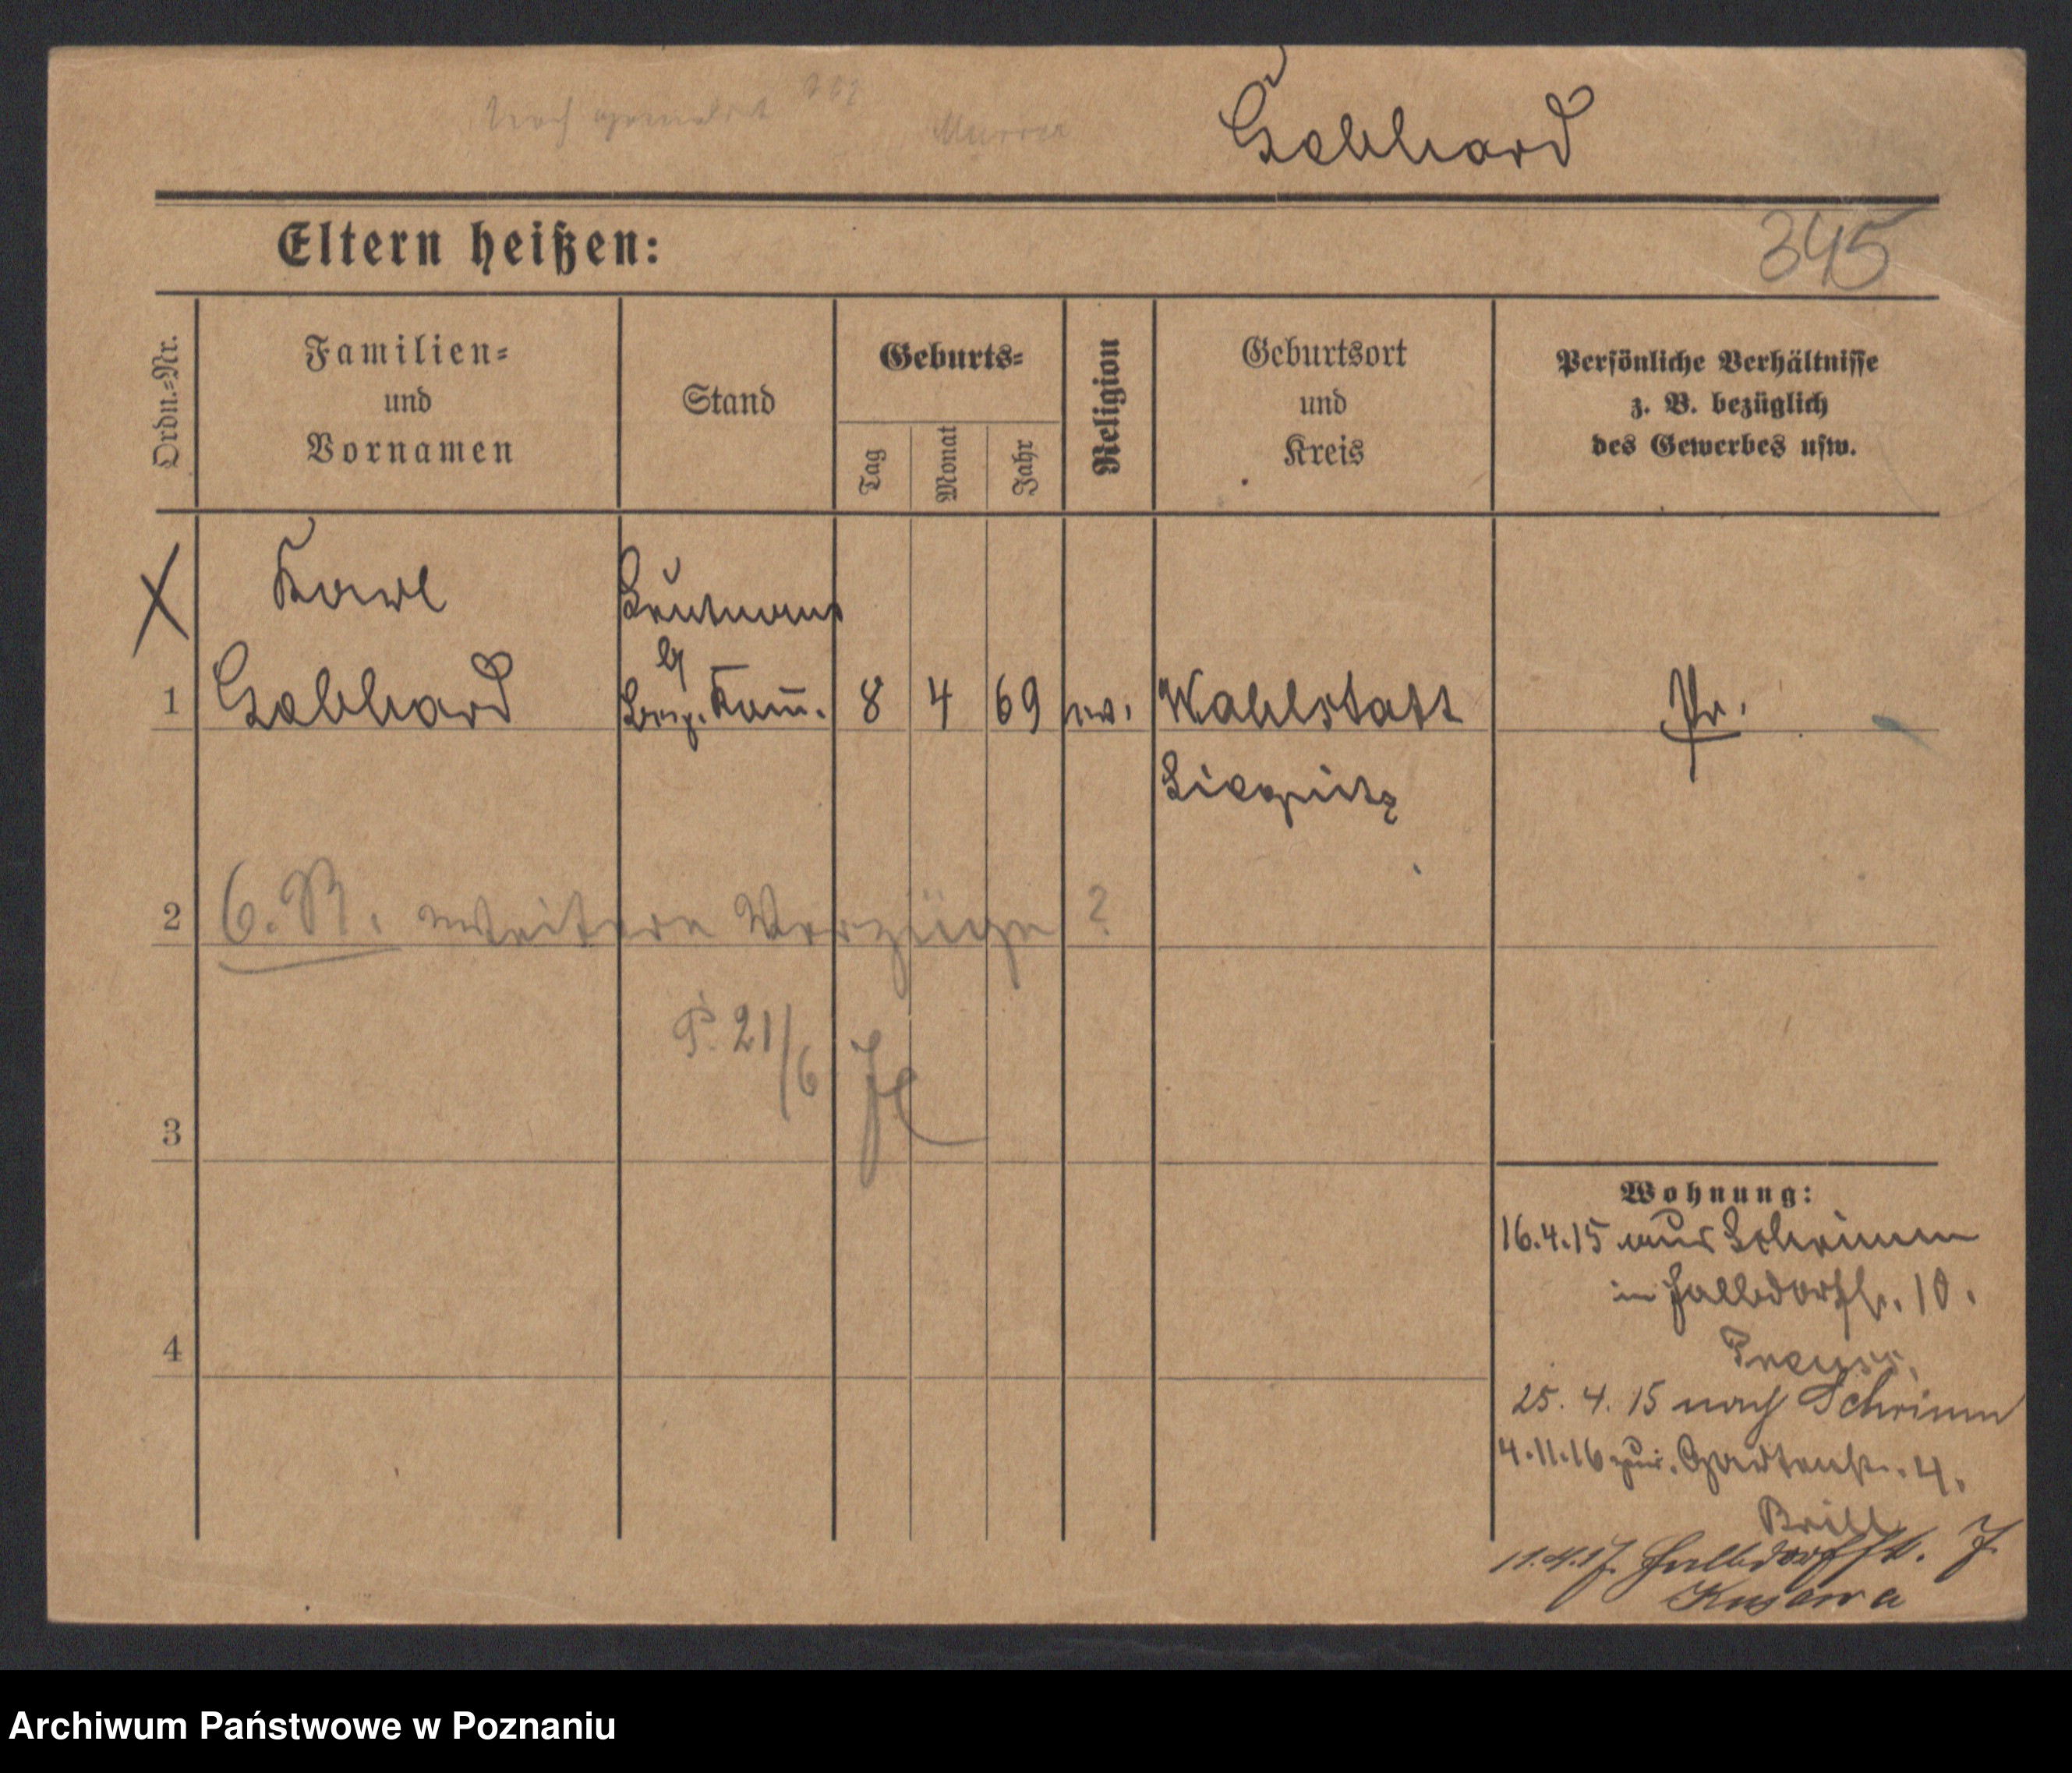 Noch gemeldet
Gebhard
Eltern heißen:
345
Ordn.-Nr.
Familien-
und
Vornamen
Stand
Geburts-
Tag
Monat
Jahr
Religion
Geburtsort
und
Kreis
Persönliche Verhältnisse
z. B. bezüglich
des Gewerbes usw.
Karl
Leutnant
1 Gebhard 8 4 69 ev. Wahlstatt Pr.
Liegnitz
2 6. R. weitere Verzüge ?
P. 21/6
3
Wohnung:
16.4.15 aus Schrimm
in Halbdorfstr. 10.
4
Preuss.
25. 4. 15 nach Schrimm
4.11.16 zur. Gartenstr. 4.
Brill
11.4.17. Halbdorfstr. 7
Kujawa
Archiwum Państwowe w Poznaniu